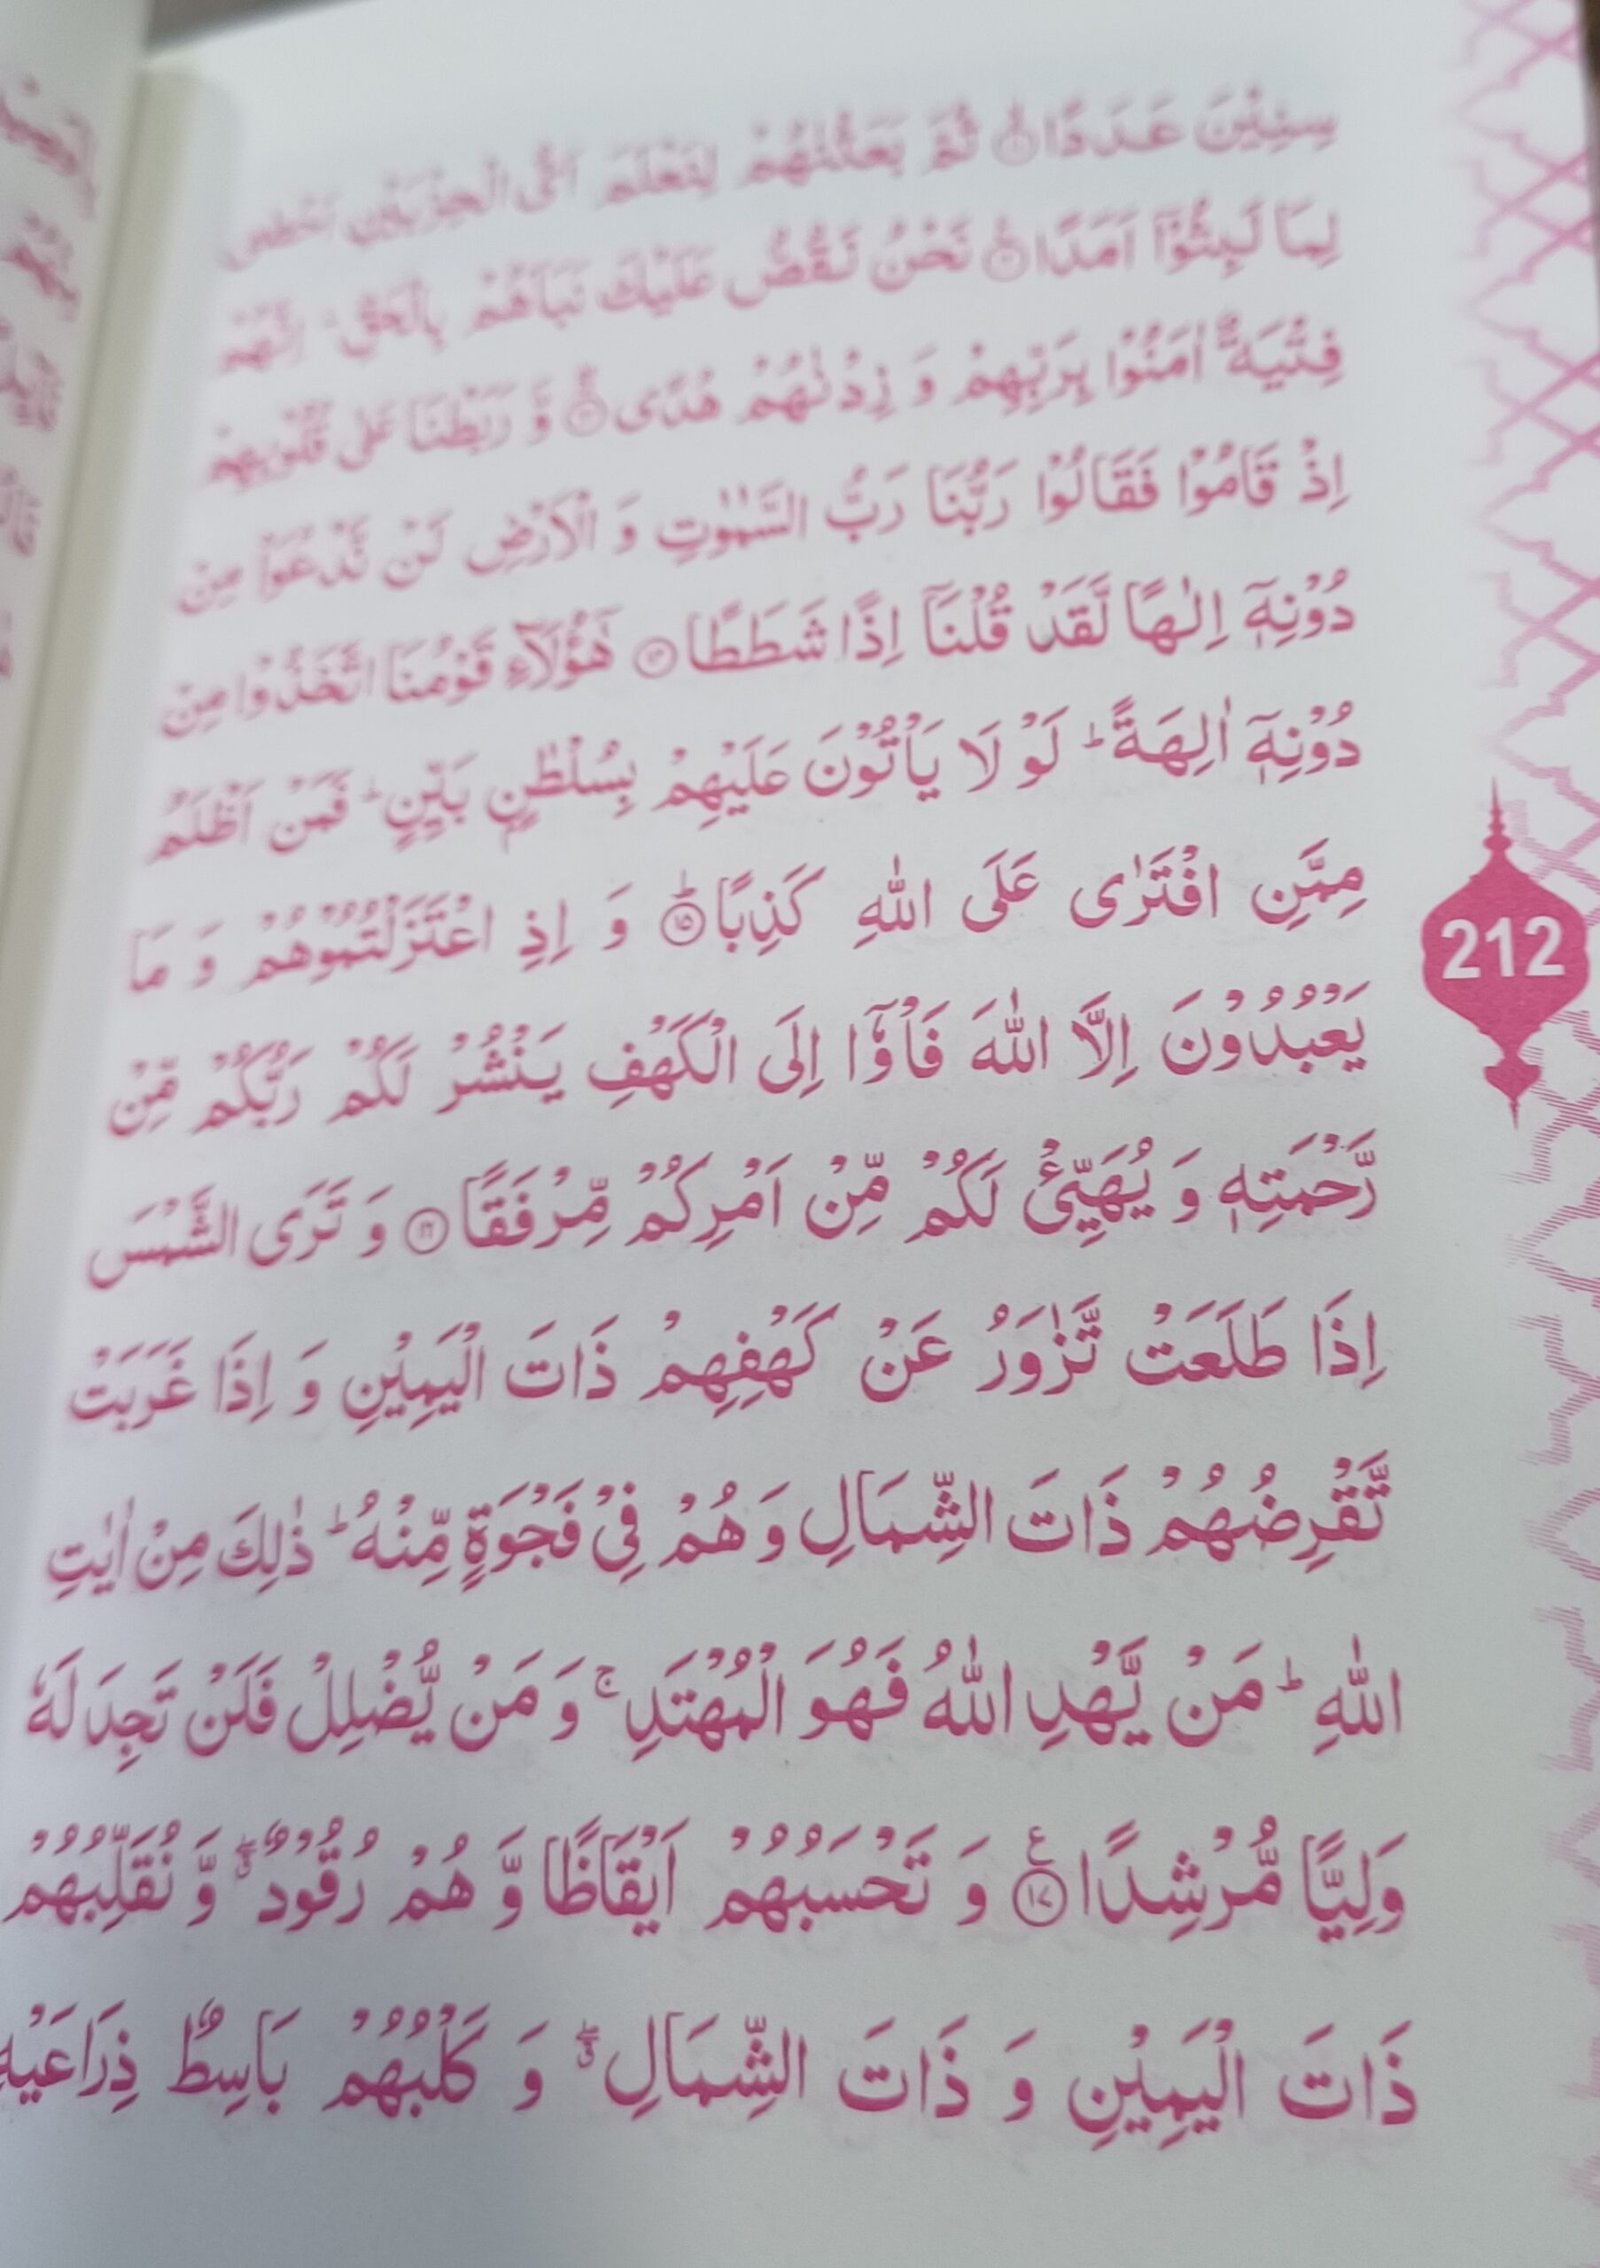 سِنِیْنَ عَدَدًا ۙ﴿۱۱﴾ ثُمَّ بَعَثْنٰهُمْ لِنَعْلَمَ اَیُّ الْحِزْبَیْنِ اَحْصٰی
لِمَا لَبِثُوْۤا اَمَدًا ﴿۱۲﴾ نَحْنُ نَقُصُّ عَلَیْكَ نَبَاَهُمْ بِالْحَقِّ ؕ اِنَّهُمْ
فِتْیَةٌ اٰمَنُوْا بِرَبِّهِمْ وَ زِدْنٰهُمْ هُدًی ﴿۱۳﴾ وَّ رَبَطْنَا عَلٰی قُلُوْبِهِمْ
اِذْ قَامُوْا فَقَالُوْا رَبُّنَا رَبُّ السَّمٰوٰتِ وَ الْاَرْضِ لَنْ نَّدْعُوَا۠ مِنْ
دُوْنِهٖۤ اِلٰهًا لَّقَدْ قُلْنَاۤ اِذًا شَطَطًا ﴿۱۴﴾ هٰۤؤُلَآءِ قَوْمُنَا اتَّخَذُوْا مِنْ
دُوْنِهٖۤ اٰلِهَةً ؕ لَوْ لَا یَاْتُوْنَ عَلَیْهِمْ بِسُلْطٰنٍۭ بَیِّنٍ ؕ فَمَنْ اَظْلَمُ
مِمَّنِ افْتَرٰی عَلَی اللّٰهِ كَذِبًا ﴿ؕ۱۵﴾ وَ اِذِ اعْتَزَلْتُمُوْهُمْ وَ مَا
یَعْبُدُوْنَ اِلَّا اللّٰهَ فَاْوٗۤا اِلَی الْكَهْفِ یَنْشُرْ لَكُمْ رَبُّكُمْ مِّنْ
رَّحْمَتِهٖ وَ یُهَیِّئْ لَكُمْ مِّنْ اَمْرِكُمْ مِّرْفَقًا ﴿۱۶﴾ وَ تَرَی الشَّمْسَ
اِذَا طَلَعَتْ تَّزٰوَرُ عَنْ كَهْفِهِمْ ذَاتَ الْیَمِیْنِ وَ اِذَا غَرَبَتْ
تَّقْرِضُهُمْ ذَاتَ الشِّمَالِ وَ هُمْ فِیْ فَجْوَةٍ مِّنْهُ ؕ ذٰلِكَ مِنْ اٰیٰتِ
اللّٰهِ ؕ مَنْ یَّهْدِ اللّٰهُ فَهُوَ الْمُهْتَدِ ۚ وَ مَنْ یُّضْلِلْ فَلَنْ تَجِدَ لَهٗ
وَلِیًّا مُّرْشِدًا ﴿۱۷﴾ ع وَ تَحْسَبُهُمْ اَیْقَاظًا وَّ هُمْ رُقُوْدٌ ۖۗ وَّ نُقَلِّبُهُمْ
ذَاتَ الْیَمِیْنِ وَ ذَاتَ الشِّمَالِ ۖۗ وَ كَلْبُهُمْ بَاسِطٌ ذِرَاعَیْهِ
212